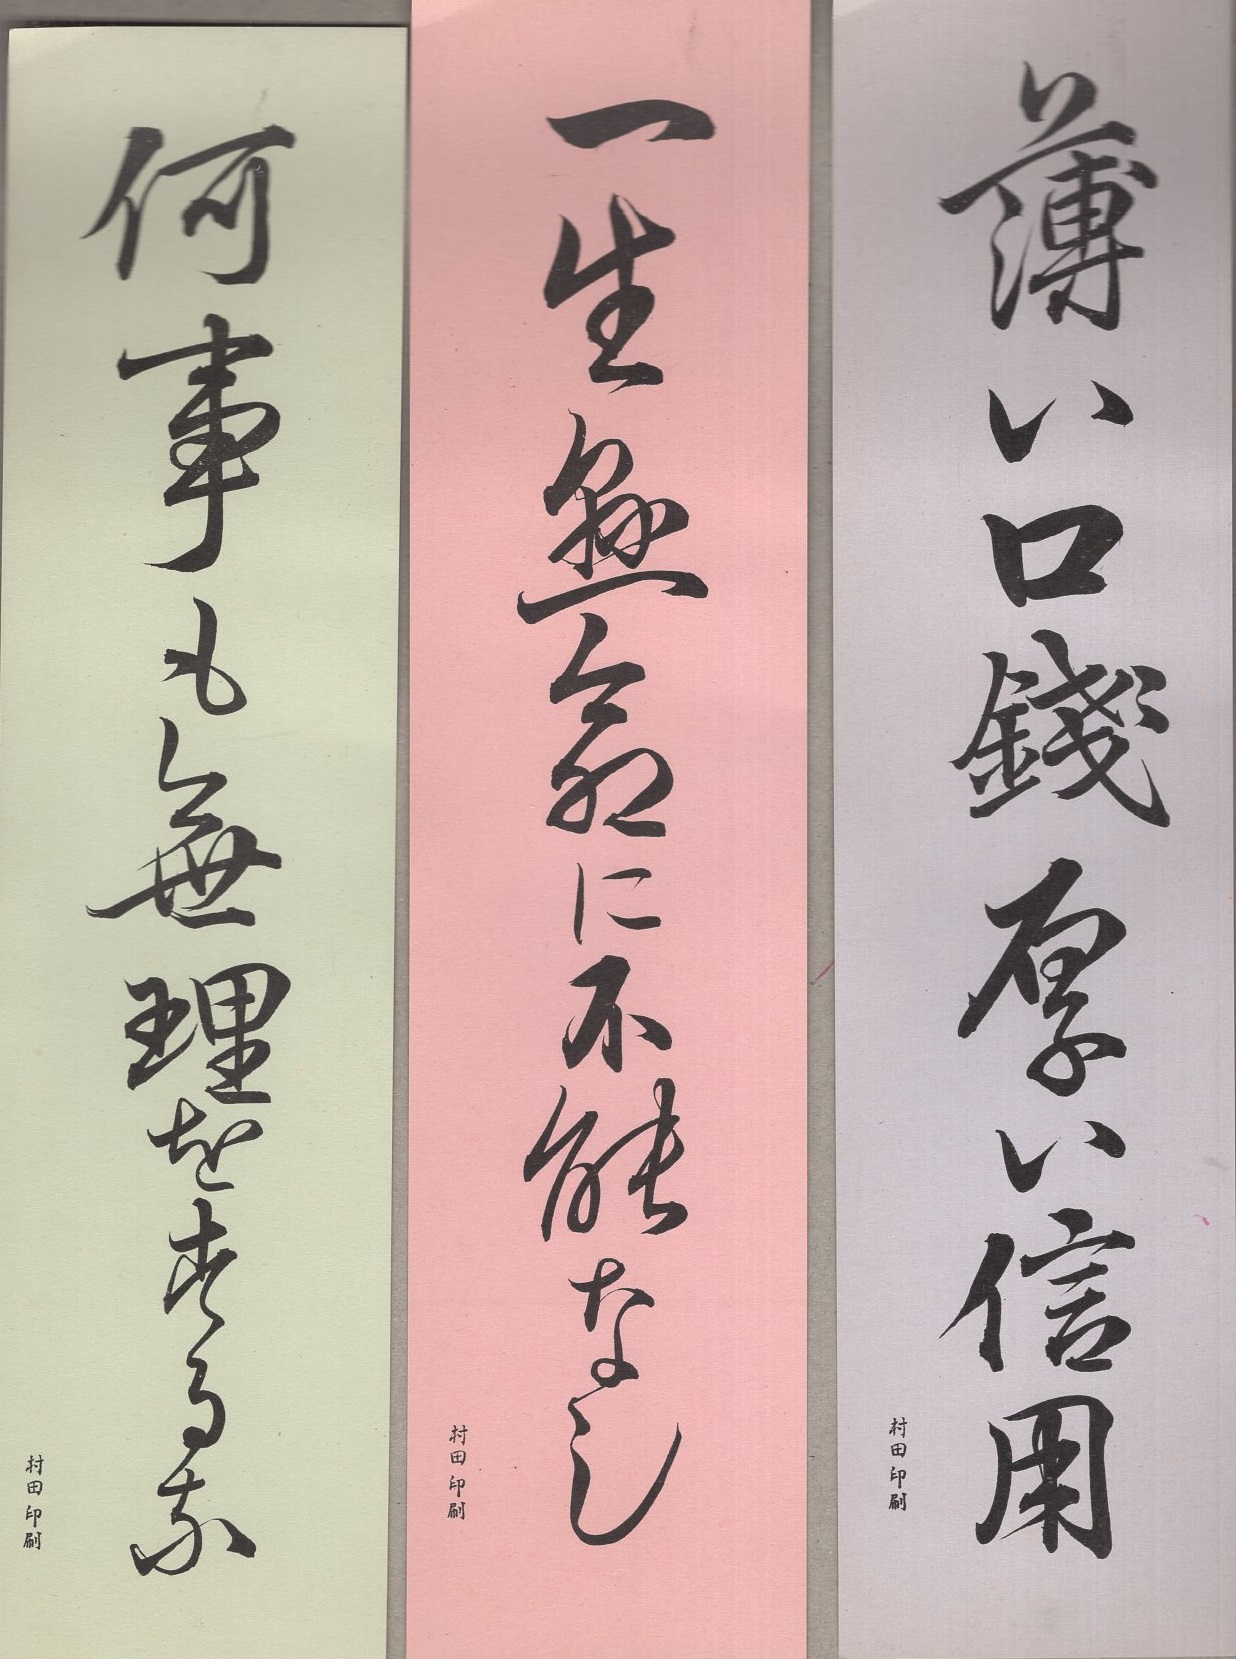 薄い口錢厚い信用
村田印刷
一生懸命に不能なし
村田印刷
何事も無理をするな
村田印刷